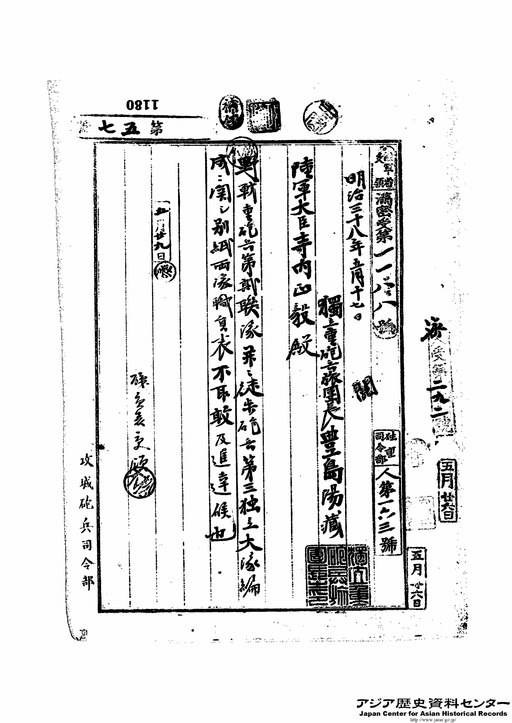 1180
第五七
満密受第一一八八號
独重司令部
人第一六三號
明治三十八年五月十七日
獨立重砲兵旅團長豊島陽藏
陸軍大臣寺内正毅殿
野戰重砲兵第貳聯隊並ニ徒歩砲兵第三独立大隊編
成ニ関シ別紙両隊職員表不取敢及進達候也
五月廿九日
攻城砲兵司令部
海
受第二九二號
五月廿六日
五月廿六日
アジア歴史資料センター
Japan Center for Asian Historical Records
http://www.jacar.go.jp/